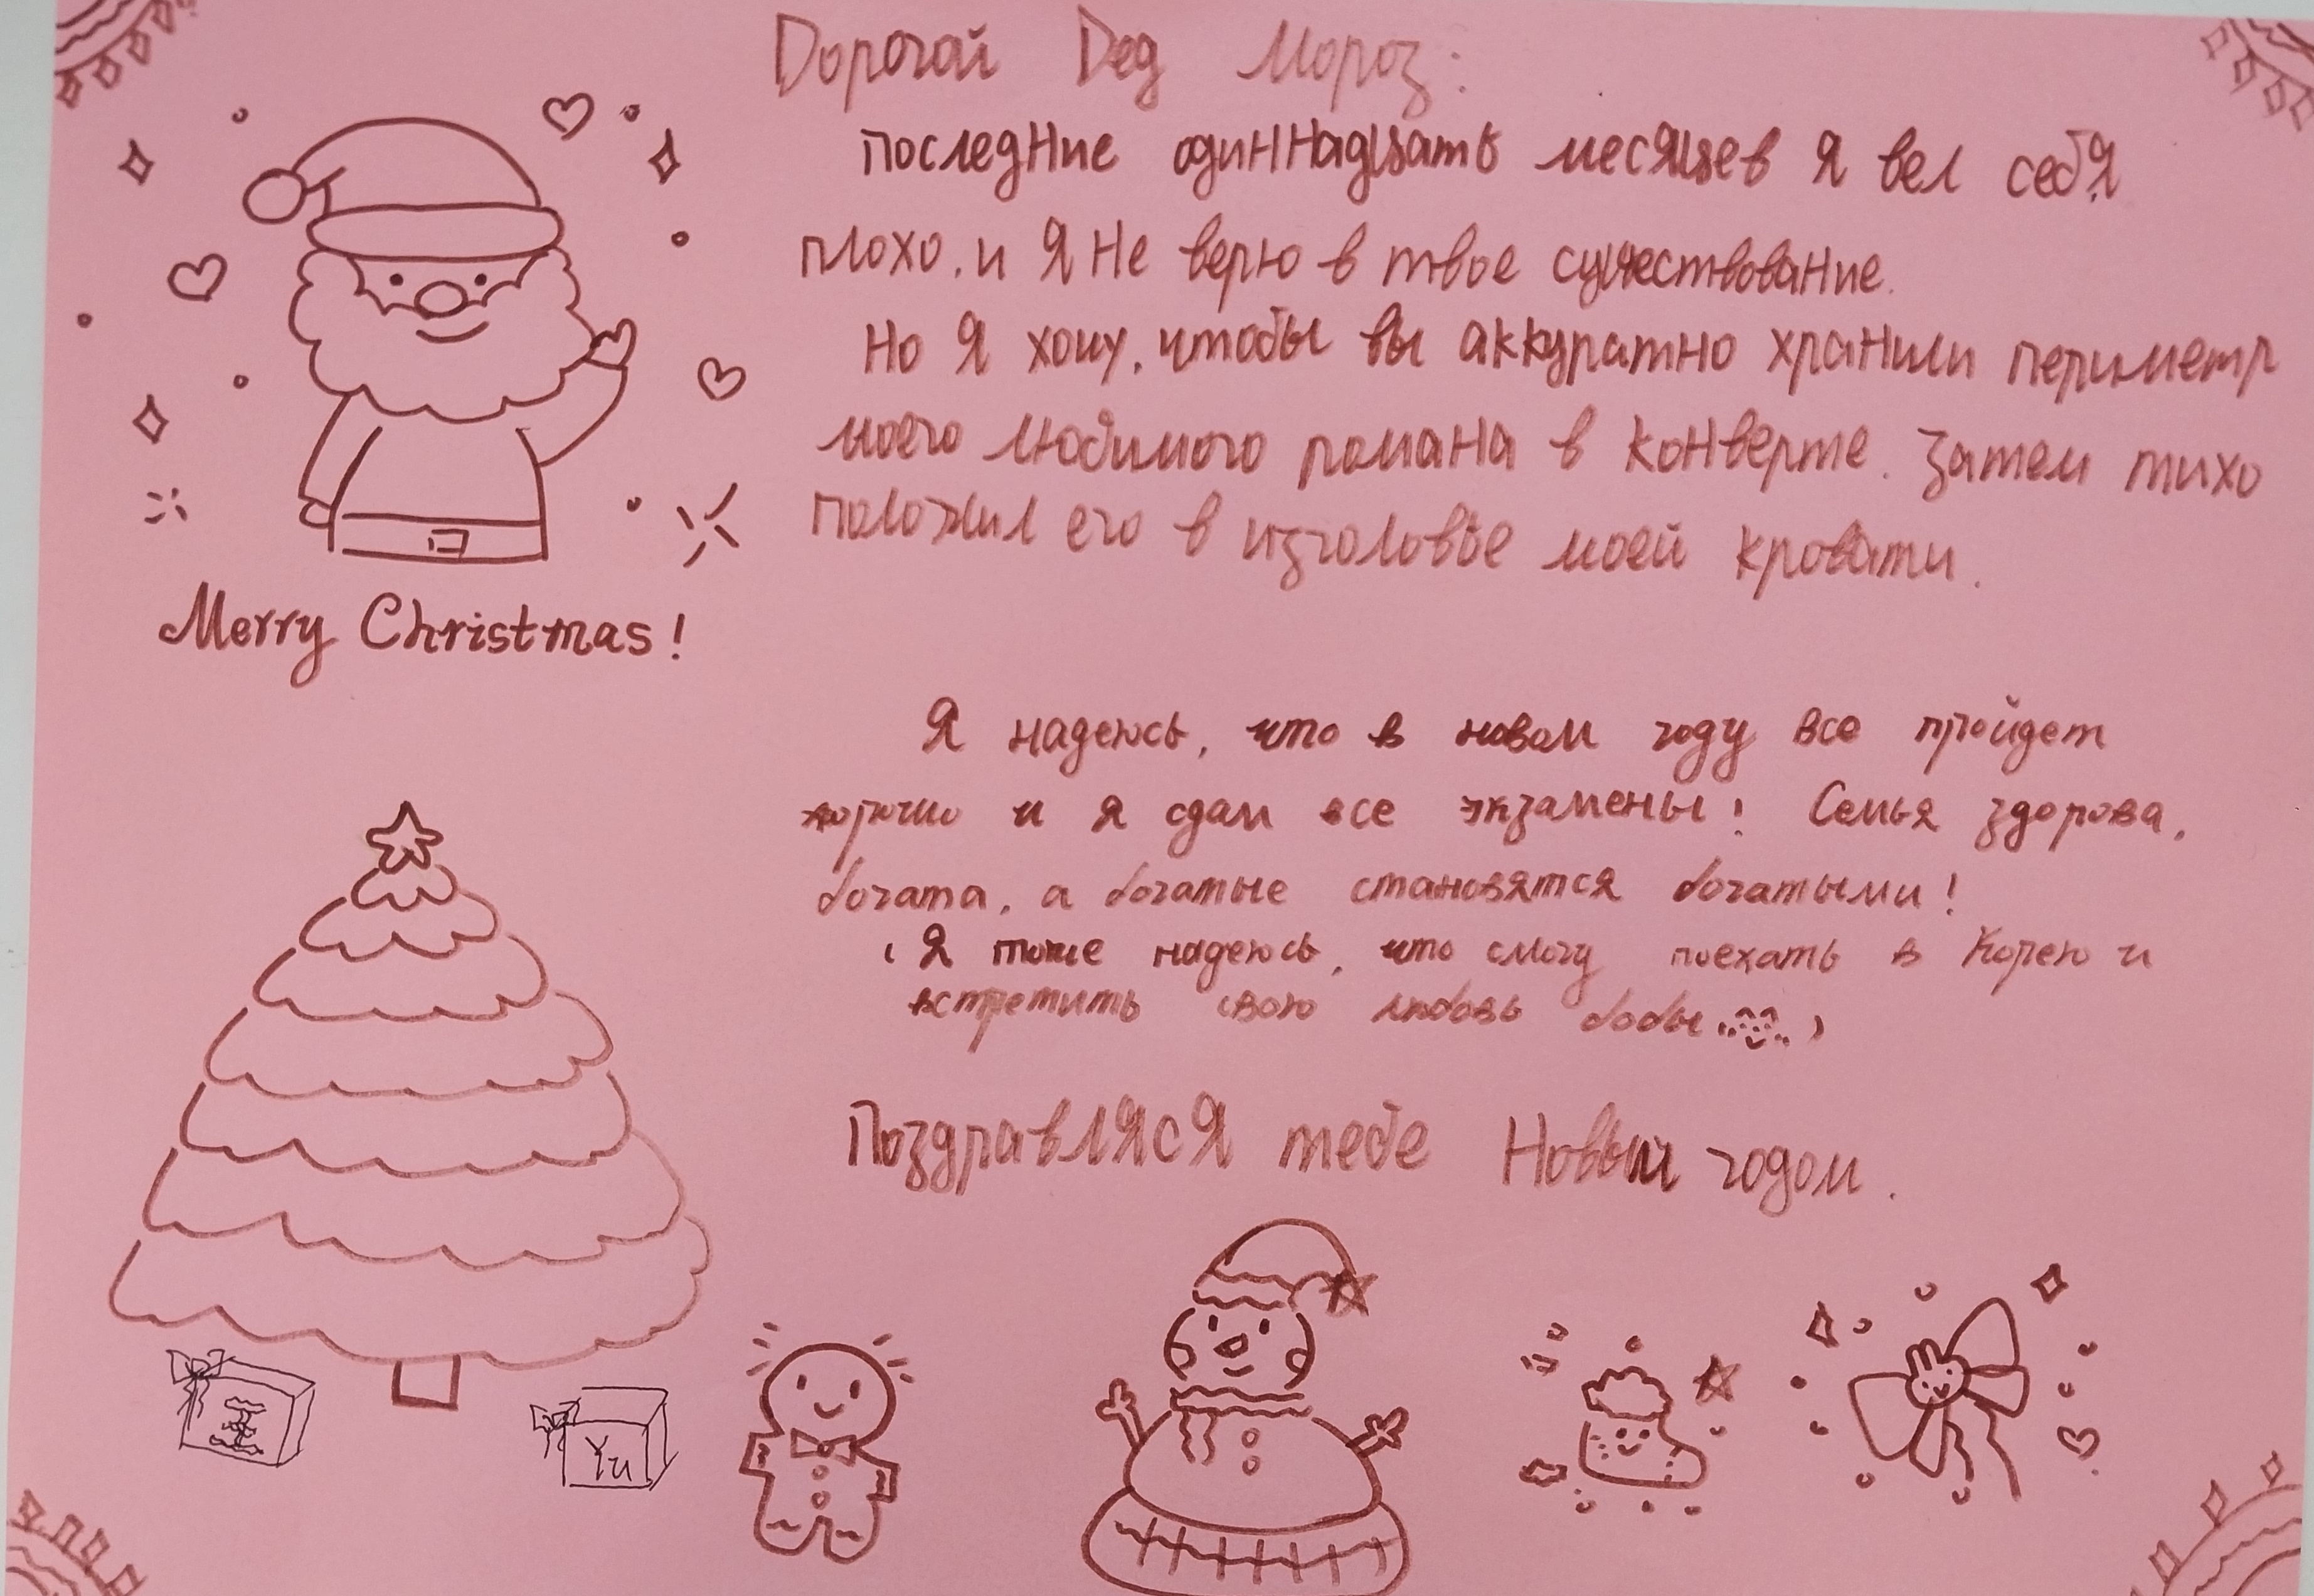 Дорогой Дед Мороз:
последние одиннадцать месяцев я вел себя
плохо, и я не верю в твое существование.
Но я хочу, чтобы вы аккуратно хранили периметр
моего любимого романа в конверте. Затем тихо
положил его в изголовье моей кровати.
Merry Christmas!
Я надеюсь, что в новом году все пройдет
хорошо и я сдам все экзамены! Семья здорова,
богата, а богатые становятся богатыми!
(Я тоже надеюсь, что смогу поехать в Корею и
встретить свою любовь бобы)
Поздравляся тебе Новым годом.
王
Yu